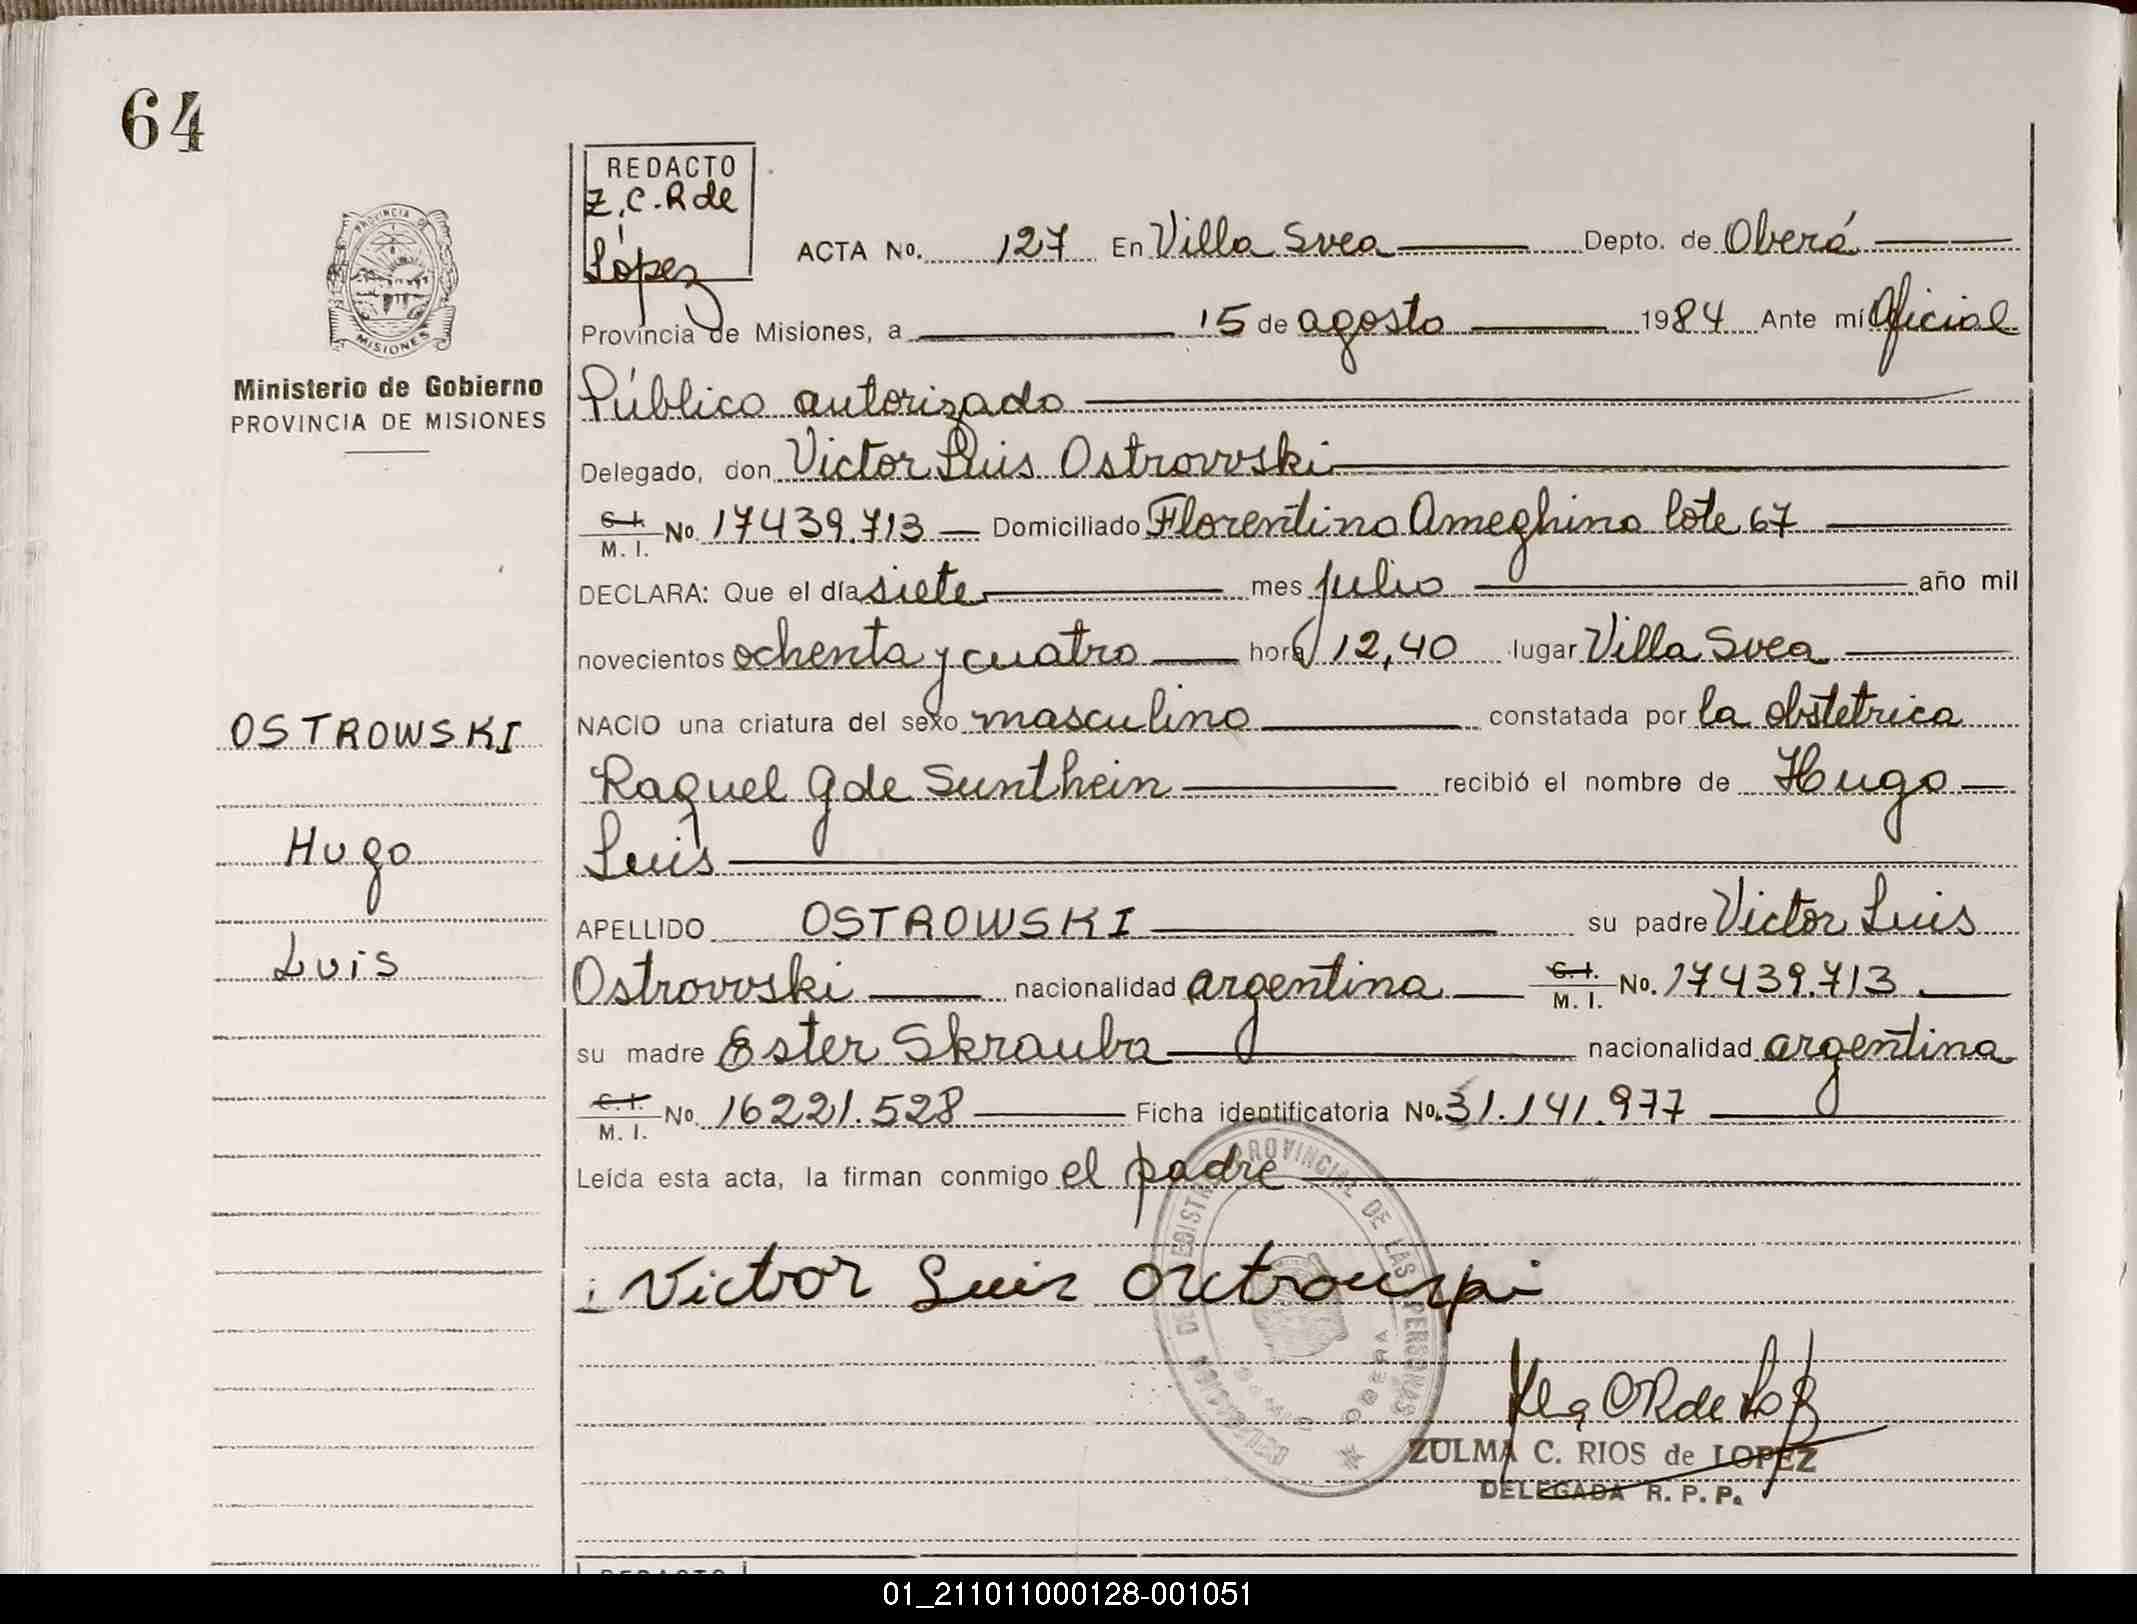 64
REDACTO
Z. C. R de
López
PROVINCIA DE
MISIONES
Ministerio de Gobierno
PROVINCIA DE MISIONES
ACTA No. 127 En Villa Svea Depto. de Oberá
Provincia de Misiones, a 15 de agosto 1984 Ante mí Oficial
Público autorizado
Delegado, don Victor Luis Ostrowski
C.I. M. I. No. 17439.713 Domiciliado Florentino Ameghino lote 67
DECLARA: Que el día siete mes julio año mil
novecientos ochenta y cuatro hora 12,40 lugar Villa Svea
NACIO una criatura del sexo masculino constatada por la obstetrica
Raquel G de Sunthein recibió el nombre de Hugo
Luis
APELLIDO OSTROWSKI su padre Victor Luis
Ostrowski nacionalidad argentina C.I. M. I. No. 17439.713
su madre Ester Skrauba nacionalidad argentina
C.I. M. I. No. 16221.528 Ficha identificatoria No. 31.141.977
Leída esta acta, la firman conmigo el padre
OSTROWSKI
Hugo
Luis
PROVINCIAL DE LAS PERSONAS
OBERA
Victor Luis Ostrowski
ZULMA C. RIOS de LOPEZ
DELEGADA R. P. P.
REDACTO
01_211011000128-001051